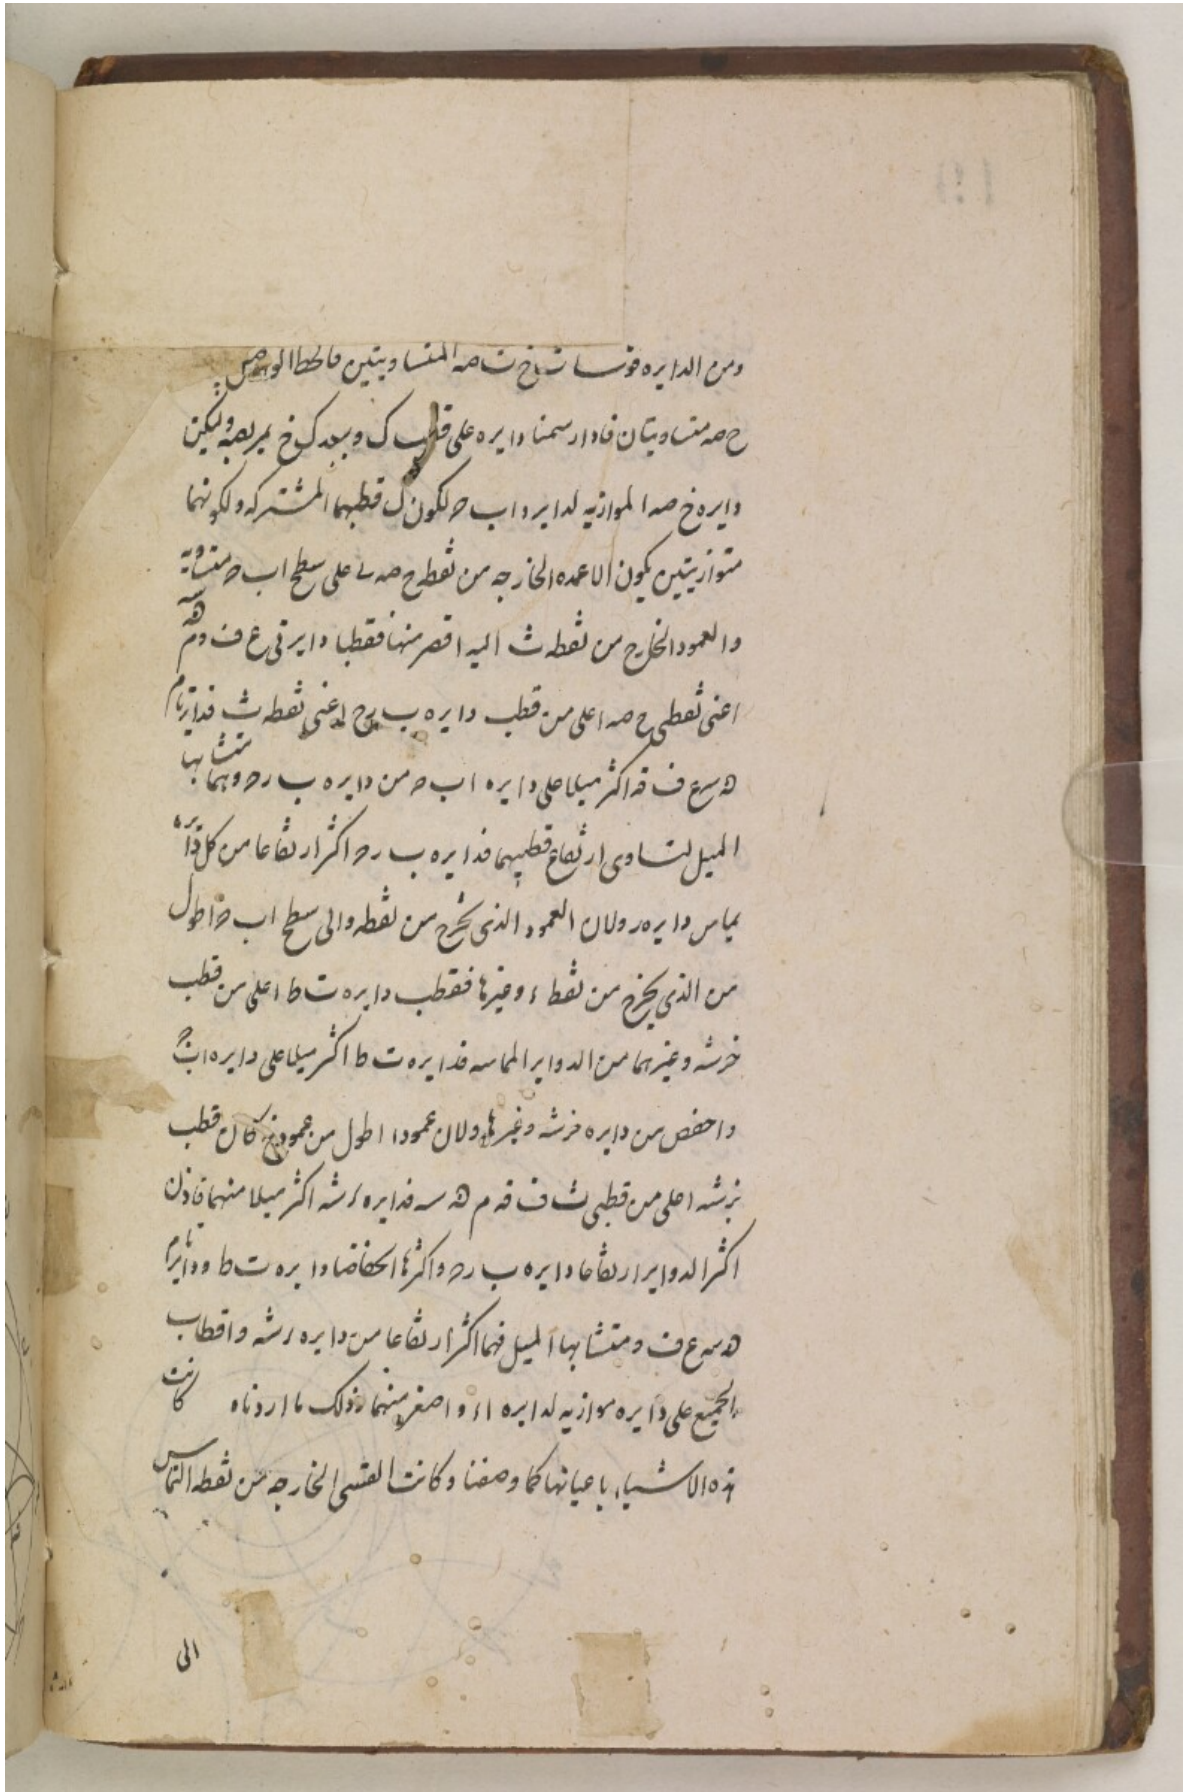 ومن الدايره قوسا ث خ ث صه المتساويتين فالخطا الواصل
خ صه متساويتان فاذا رسمنا دايره على قطب ك وببعد ك خ يمر بصه وليكن
دايره خ صه الموازيه لدايره اب ح لكون ك قطبهما المشتركه ولكونهما
متوازيتين يكون الاعمده الخارجه من نقط خ صه ى على سطح اب ح متساويه
والعمود الخارج من نقطه ث اليه اقصر منها فقطبا دايرتى ع ف وم هسه
اعنى نقطى خ صه اعلى من قطب دايره ب رح اعنى نقطه ث فدايرتا م
هسه ع ف قه اكثر ميلا على دايره اب ح من دايره ب رح وهما متشابها
الميل لتساوى ارتفاع قطبيهما فدايره ب رح اكثر ارتفاعا من كل دائره
يماس دايره ر ولان العمود الذى يخرج من نقطه و الى سطح اب ح اطول
من الذي يخرج من نقط ء وغيرها فقطب دايره ت ط اعلى من قطب
خرشه وغيرهما من الدواير المماسه فدايره ت ط اكثر ميلا على دايره اب ح
واخفض من دايره خرشه وغيرها ولان عمودا اطول من عمود خ كان قطب
برشه اعلى من قطبى ث ف قه م هسه فدايره رشه اكثر ميلا منهما فاذن
اكثر الدواير ارتفاعا دايره ب رح واكثرها انخفاضا دايره ت ط ودايرتا م
هسه ع ف ومتشابها الميل فهما اكثر ارتفاعا من دايره رشه واقطاب
الجميع على دايره موازيه لدايره اء واصغر منهما وذلك ما اردناه كانت
هذه الاشياء باعيانها كما وصفنا وكانت القسى الخارجه من نقطه التماس
الى